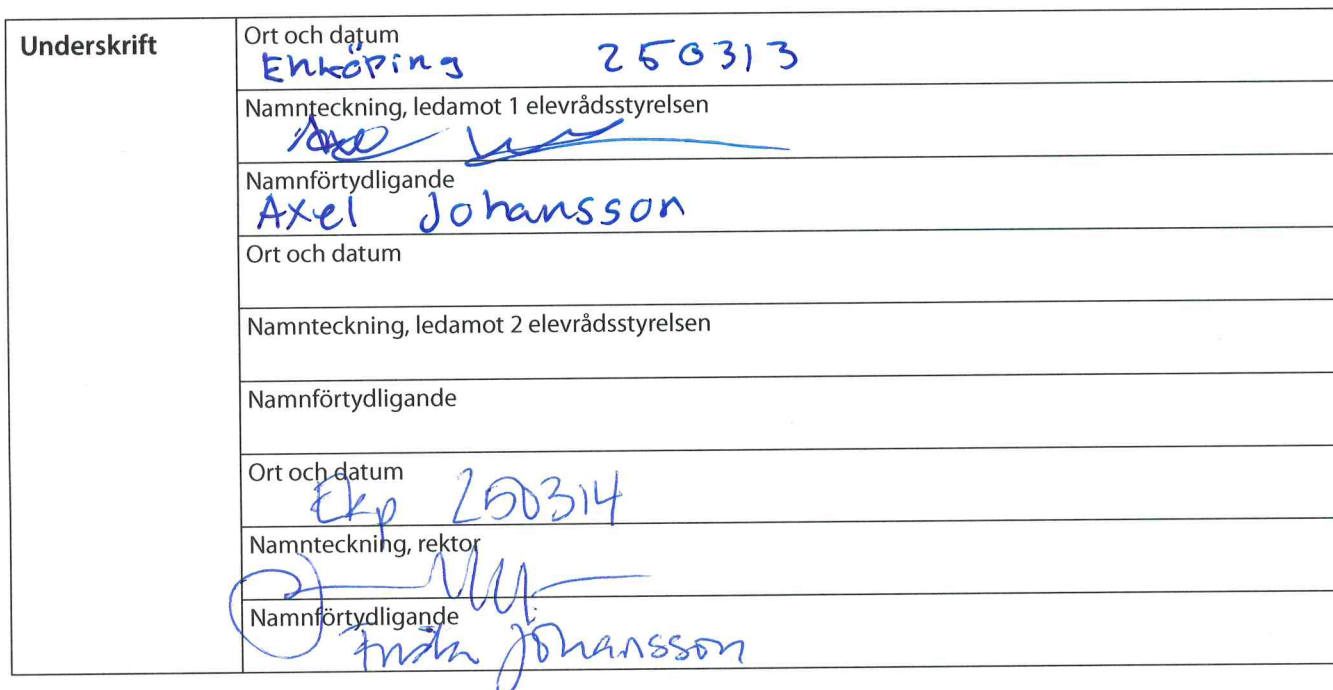 Underskrift
Ort och datum
Enköping 250313
Namnteckning, ledamot 1 elevrådsstyrelsen
Axel
Namnförtydligande
Axel Johansson
Ort och datum
Namnteckning, ledamot 2 elevrådsstyrelsen
Namnförtydligande
Ort och datum
Ekp 250314
Namnteckning, rektor
Namnförtydligande
Johansson